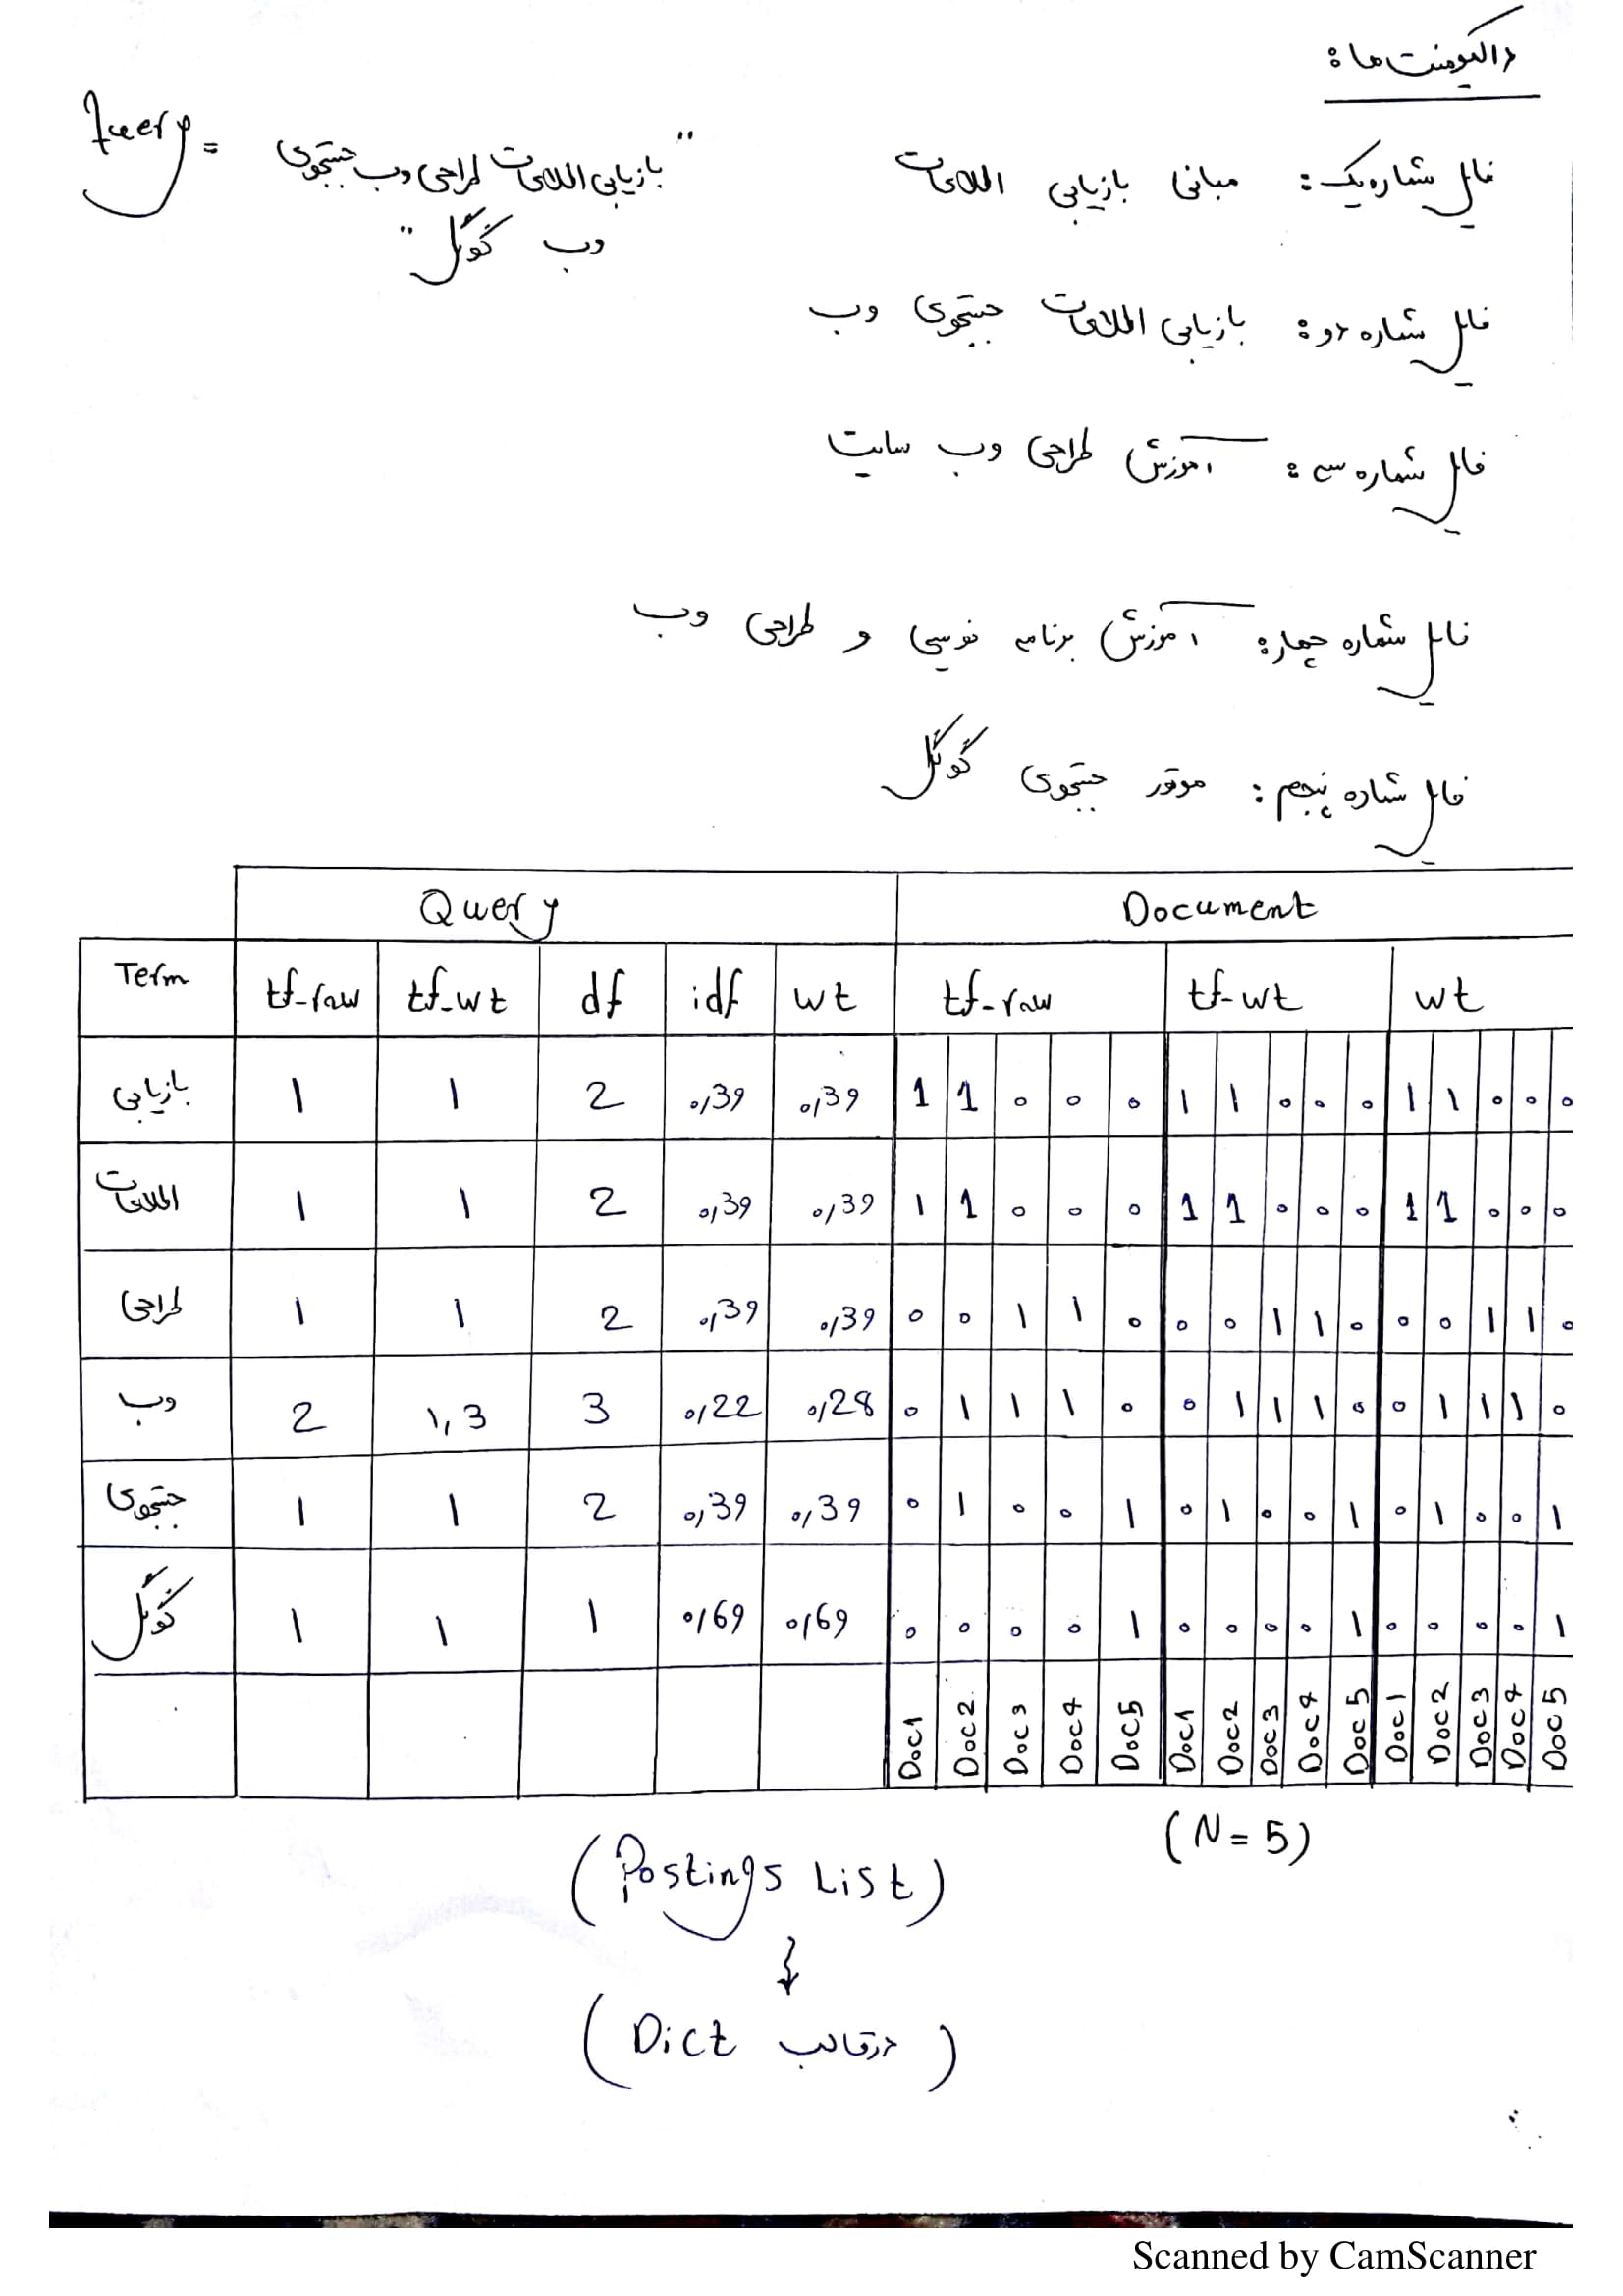 داکیومنت ها:
Query = "بازیابی اطلاعات طراحی وب جستجوی
وب گوگل"
فایل شماره یک: مبانی بازیابی اطلاعات
فایل شماره دو: بازیابی اطلاعات جستجوی وب
فایل شماره سه: آموزش طراحی وب سایت
فایل شماره چهار: آموزش برنامه نویسی و طراحی وب
فایل شماره پنجم: موتور جستجوی گوگل
Query Document
Term tf-raw tf-wt df idf wt tf-raw tf-wt wt
بازیابی 1 1 2 0,39 0,39 1 1 0 0 0 1 1 0 0 0 1 1 0 0 0
اطلاعات 1 1 2 0,39 0,39 1 1 0 0 0 1 1 0 0 0 1 1 0 0 0
طراحی 1 1 2 0,39 0,39 0 0 1 1 0 0 0 1 1 0 0 0 1 1 0
وب 2 1,3 3 0,22 0,28 0 1 1 1 0 0 1 1 1 0 0 1 1 1 0
جستجوی 1 1 2 0,39 0,39 0 1 0 0 1 0 1 0 0 1 0 1 0 0 1
گوگل 1 1 1 0,69 0,69 0 0 0 0 1 0 0 0 0 1 0 0 0 0 1
Doc1 Doc2 Doc3 Doc4 Doc5 Doc1 Doc2 Doc3 Doc4 Doc5 Doc1 Doc2 Doc3 Doc4 Doc5
(N=5)
(Postings List)
(در قالب Dict)
Scanned by CamScanner